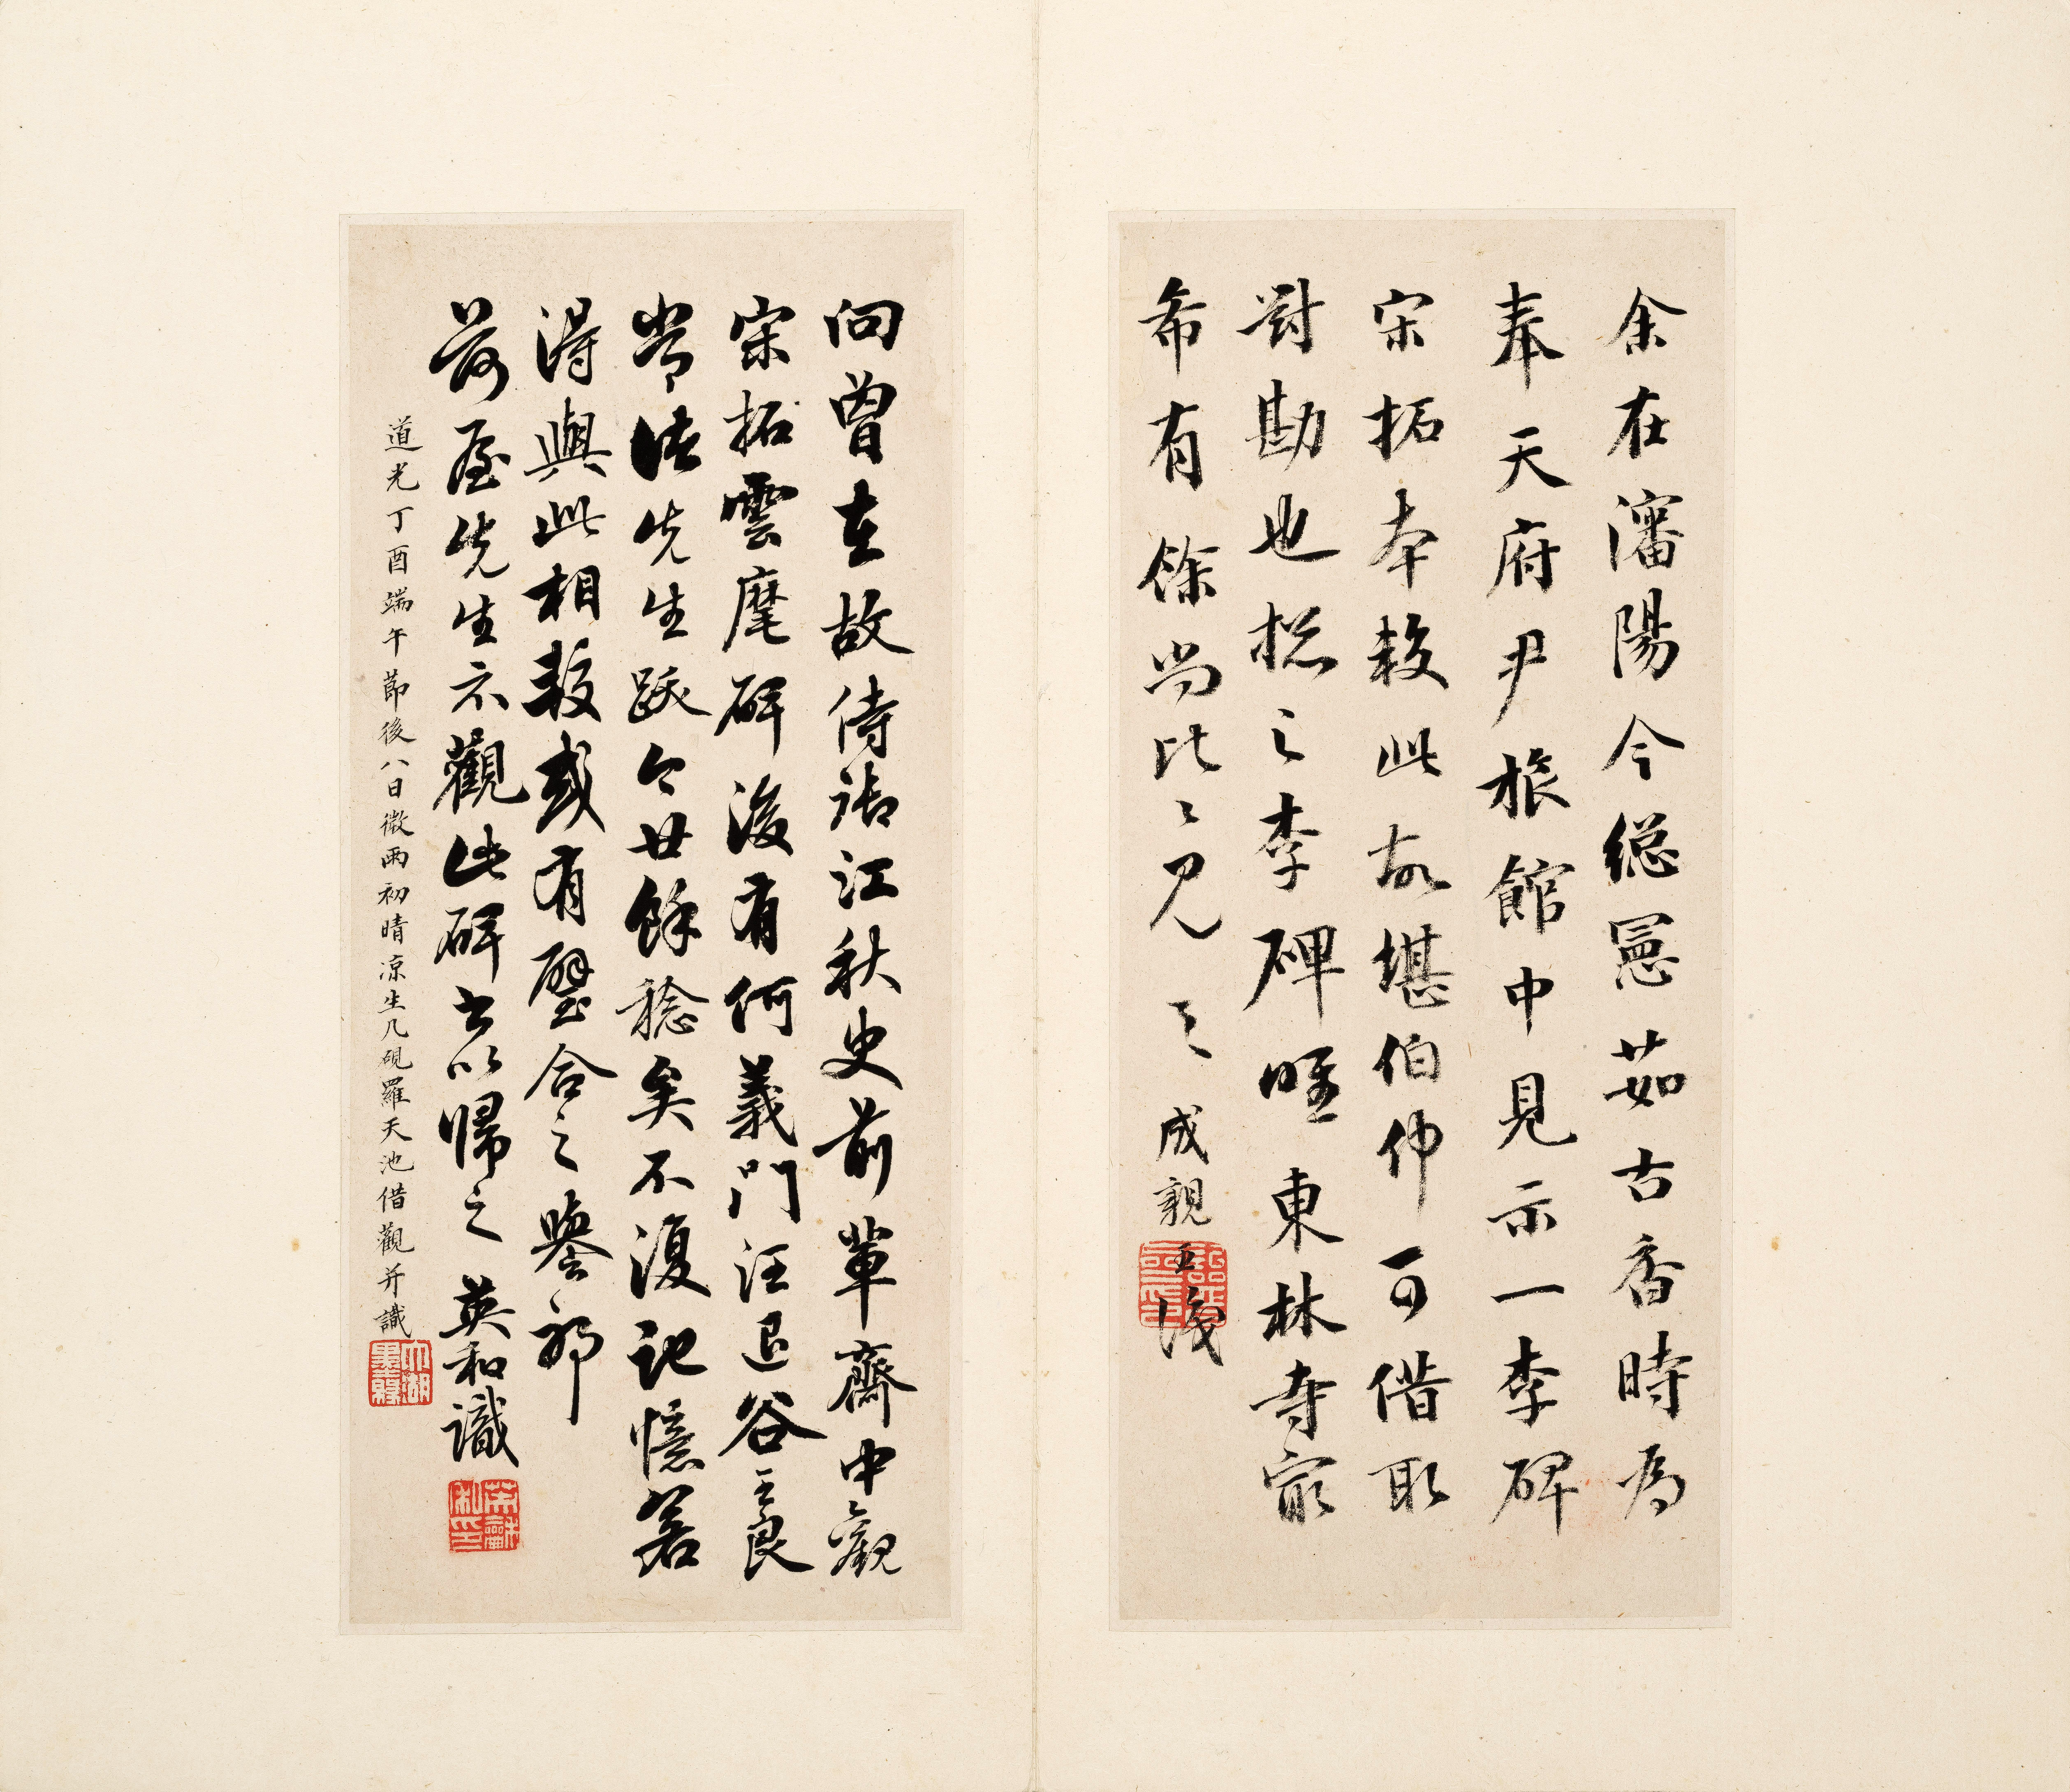 余在瀋陽今総憲茹古香時為
奉天府尹旅館中見示一李碑
宋拓本較此故堪伯仲可借取
對勘也揔之李碑唯東林寺最
希有餘尚比〻見〻
成親王識
向曾在故侍御江秋史前輩齋中觀
宋拓雲麾碑後有何義門汪退谷王良
常諸先生跋今廿餘稔矣不復記憶若
得與此相較或有璧合之譽耶
荷屋先生示觀此碑書以歸之 英和識
道光丁酉端午節後八日微雨初晴凉生几硯羅天池借觀并識
六湖
墨緣
英龢
私印